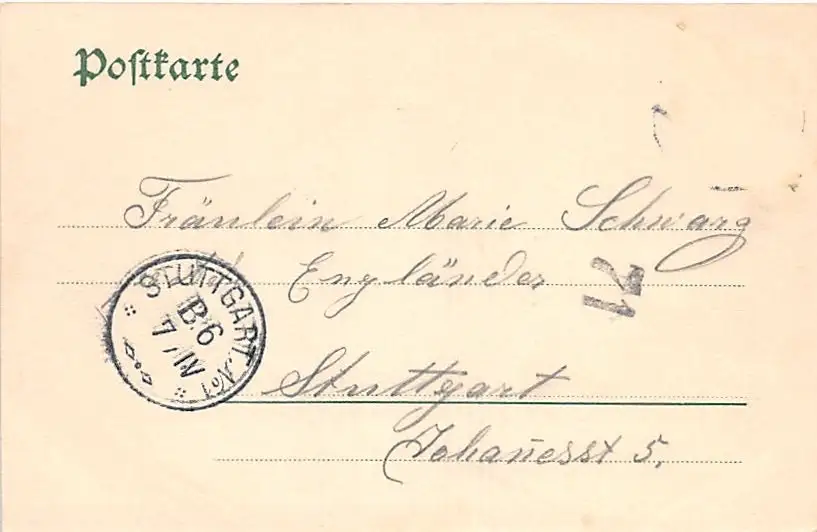 Postkarte
Fräulein Marie Schwarz
Engländer
Stuttgart
Johannesst 5.
STUTTGART. No1
B6
7/IV
71